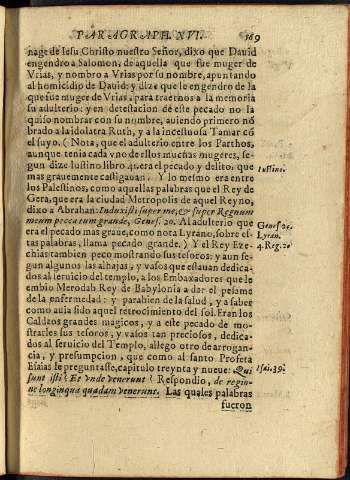 PARAGRAPH. XVI. 169
nage de Iesu Christo nuestro Señor, dixo que Dauid
engendro a Salomon, de aquella que fue muger de
Vrias, y nombro a Vrias por su nombre, apuntando
al homicidio de Dauid: y dize que le engendro de la
que fue muger de Vrias, para traernos a la memoria
su adulterio: y en detestacion de este pecado no la
quiso nombrar con su nombre, auiendo primero nõ
brado a la idolatra Ruth, y a la incestuosa Tamar cõ
el suyo. ( Nota, que el adulterio entre los Parthos,
aunque tenia cada vno de ellos muchas mugeres, se-
gun dize Iustino libro 41. era el pecado y delito que
mas grauemente castigauan. Y lo mesmo era entre
los Palestinos, como aquellas palabras que el Rey de
Gera, que era la ciudad Metropolis de aquel Reyno,
dixo a Abrahan: Induxisti super me, & super Regnum
meum peccatum grande, Genes. 20. Al adulterio que
era el pecado mas graue, como nota Lyrano, sobre es-
tas palabras, llama pecado grande. ) Y el Rey Eze-
chias tambien peco mostrando sus tesoros: y aun se-
gun algunos las alhajas, y vasos que estauan dedica-
dos al seruicio del templo, a los Embaxadores que le
embio Merodab Rey de Babylonia a dar el pesame
de la enfermedad: y parabien de la salud, y a saber
como auia sido aquel retrocimiento del sol. Eran los
Caldeos grandes magicos, y a este pecado de mo-
strarles sus tesoros, y vasos tan preciosos, dedica-
dos al seruicio del Templo, allego otro de arrogan-
cia, y presumpcion, que como al santo Profeta
Esaias le preguntasse, capitulo treynta y nueue: Qui
sunt isti? Et vnde venerunt? Respondio, de regio-
ne longinqua quadam venerunt. Las quales palabras
fueron
Iustino.
Genes 20.
Lyran.
4. Reg. 20
Isai. 39.